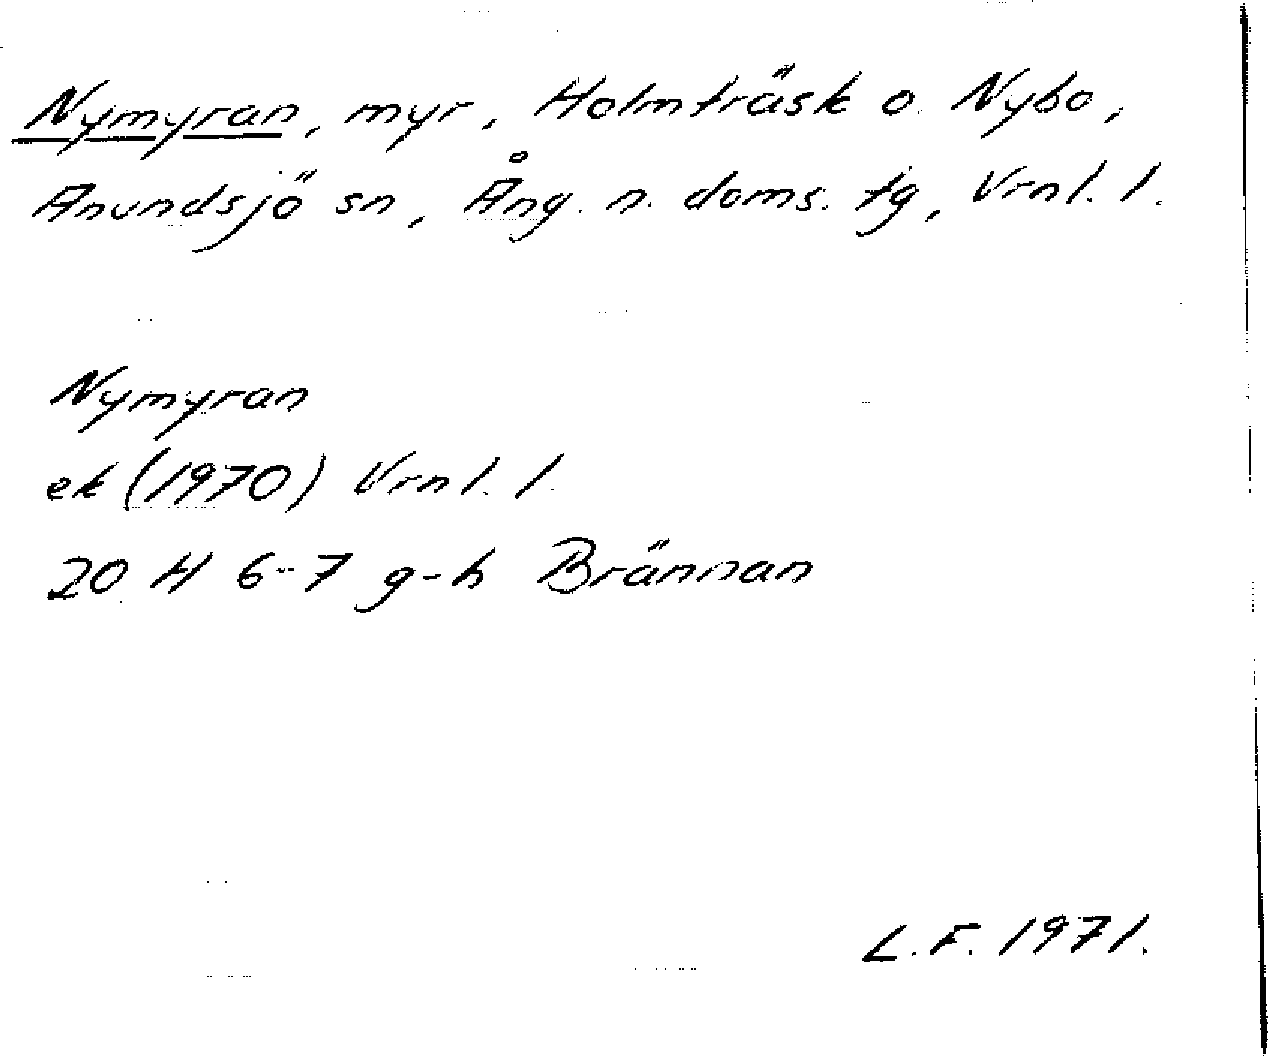 Nymyran, myr, Holmträsk o. Nybo,
Anundsjö sn, Ång. n. doms. tg, Vrnl. l.
Nymyran
ek (1970) Vrnl. l.
20 H 6-7 g-h Brännan
L.F. 1971.